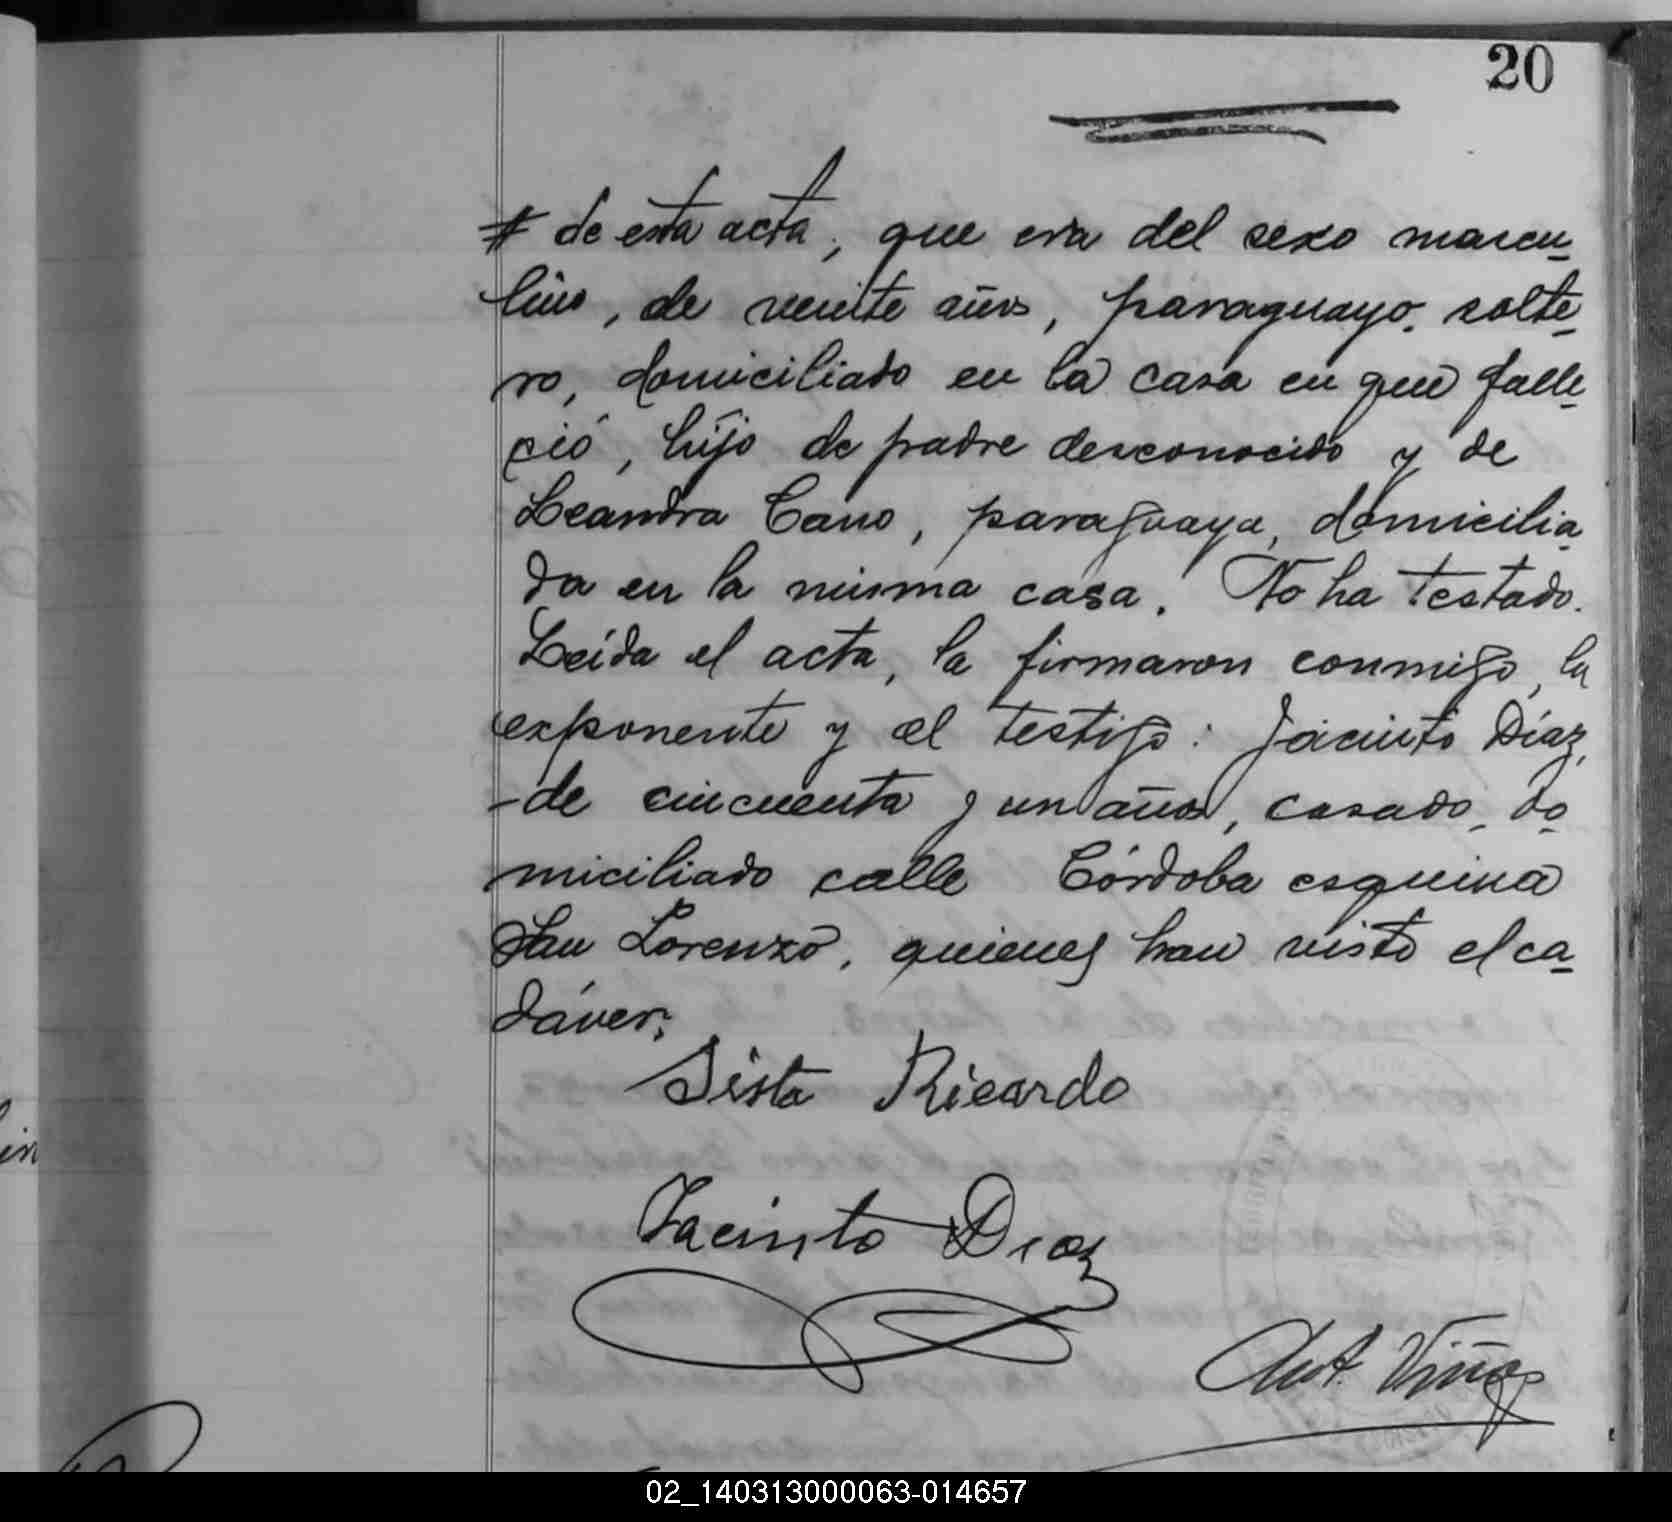 20
# de esta acta, que era del sexo mascu-
lino, de veinte años, paraguayo, solte-
ro, domiciliado en la casa en que falle-
ció, hijo de padre desconocido y de
Leandra Cano, paraguaya, domicilia-
da en la misma casa. No ha testado.
Leída el acta, la firmaron conmigo, la
exponente y el testigo: Jacinto Díaz,
de cincuenta y un años, casado, do-
miciliado calle Córdoba esquina
San Lorenzo, quienes han visto el ca-
dáver.
Sista Ricardo
Jacinto Diaz
Ant. Viñas
02_140313000063-014657